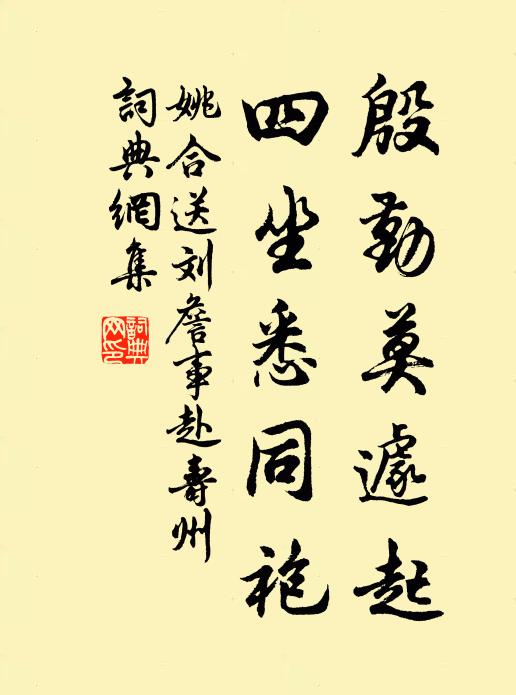 殷勤莫遽起
四坐悉同袍
姚合送刘詹事赴壽州
詞典網集
詞典网印